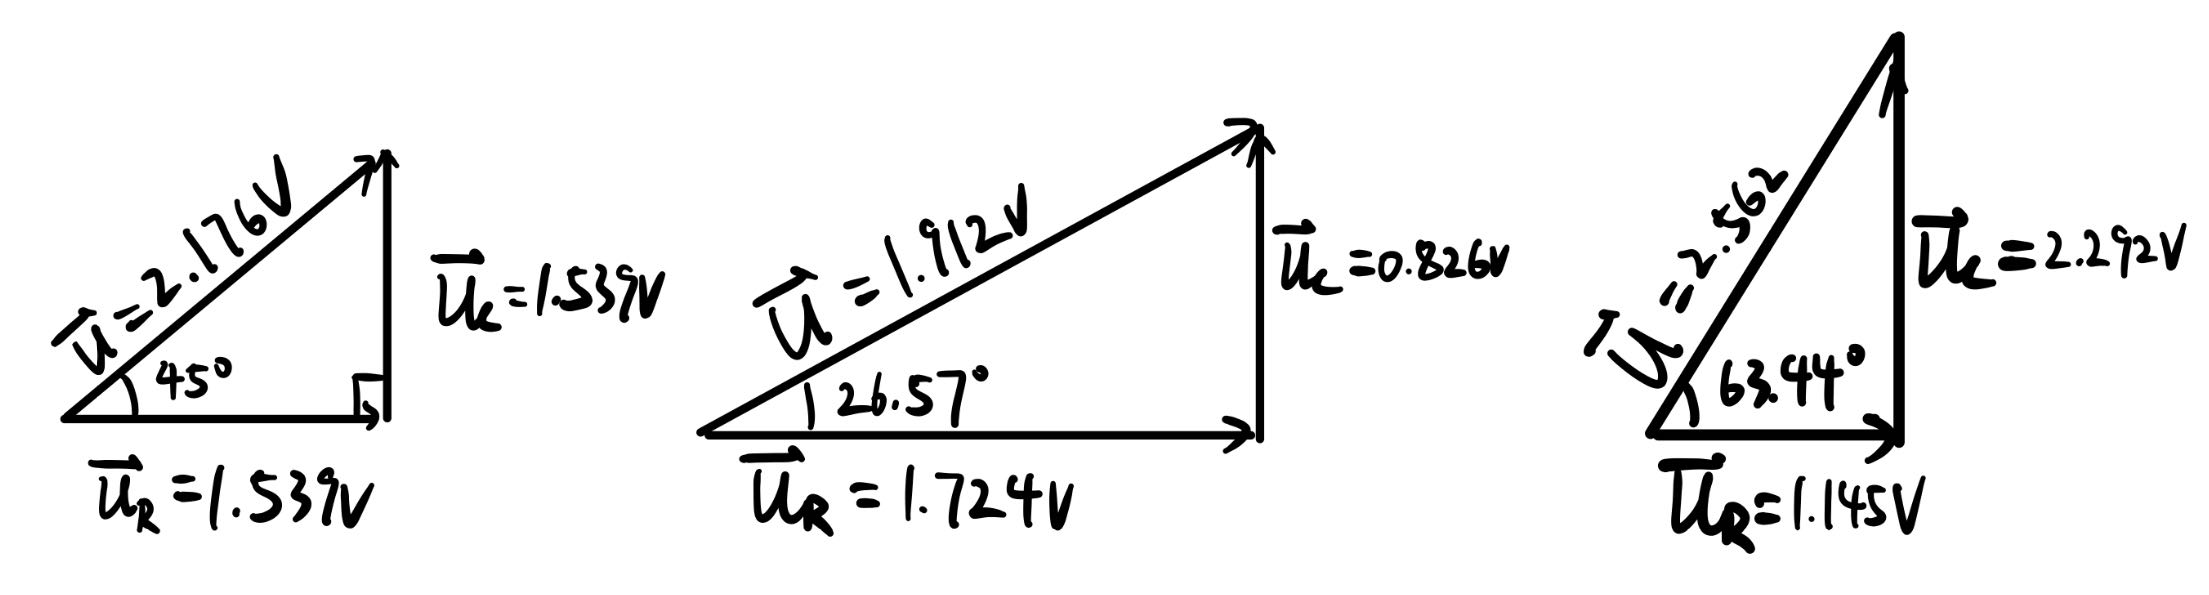 U = 2.176V
45°
U_C = 1.539V
U_R = 1.539V
U = 1.912V
26.57°
U_C = 0.826V
U_R = 1.724V
U = 2.562
63.44°
U_C = 2.292V
U_R = 1.145V